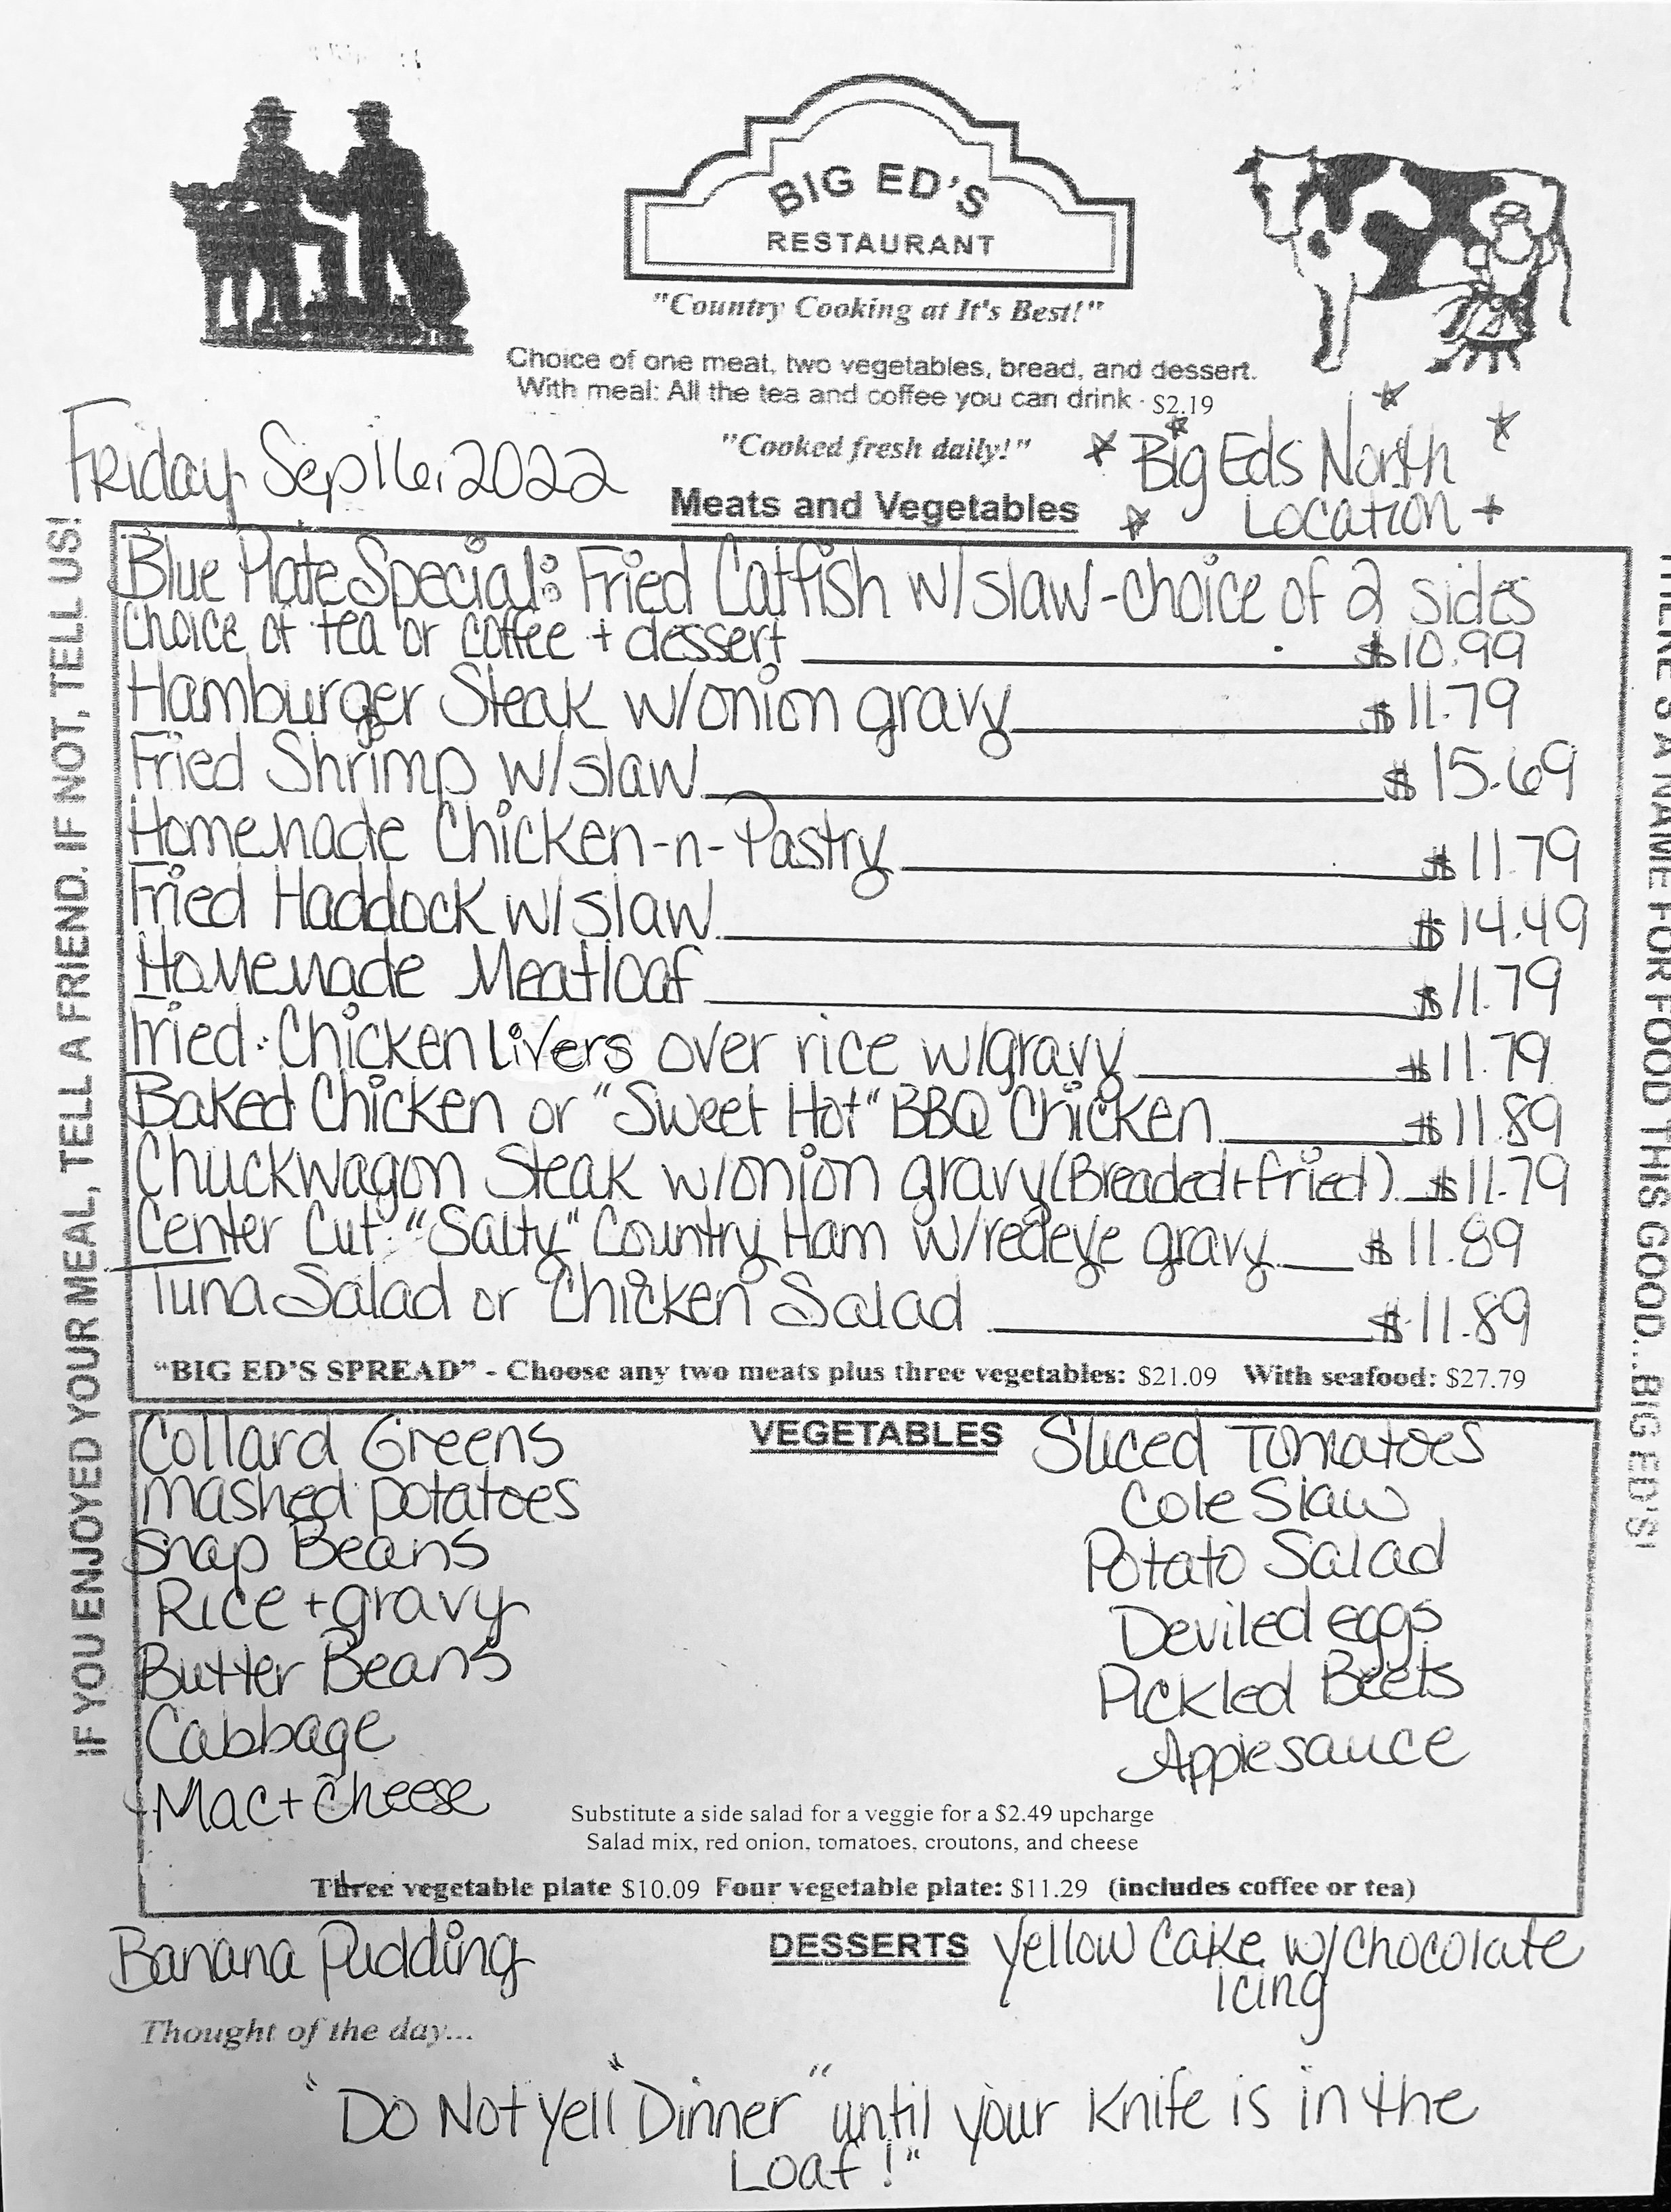 BIG ED'S
RESTAURANT
"Country Cooking at It's Best!"
Choice of one meat, two vegetables, bread, and dessert.
With meal: All the tea and coffee you can drink - $2.19
"Cooked fresh daily!"
Friday Sep 16, 2022
Big Eds North
Location
Meats and Vegetables
Blue Plate Special: Fried Catfish w/slaw - choice of 2 sides
choice of tea or coffee + dessert $10.99
Hamburger Steak w/onion gravy $11.79
Fried Shrimp w/slaw $15.69
Homemade Chicken-n-Pastry $11.79
Fried Haddock w/slaw $14.49
Homemade Meatloaf $11.79
Fried Chicken livers over rice w/gravy $11.79
Baked Chicken or "Sweet Hot" BBQ Chicken $11.89
Chuckwagon Steak w/onion gravy (Breaded + fried) $11.79
Center Cut "Salty" Country Ham w/redeye gravy $11.89
Tuna Salad or Chicken Salad $11.89
"BIG ED'S SPREAD" - Choose any two meats plus three vegetables: $21.09 With seafood: $27.79
VEGETABLES
Collard Greens
mashed potatoes
Snap Beans
Rice + gravy
Butter Beans
Cabbage
Mac + cheese
Sliced Tomatoes
Cole Slaw
Potato Salad
Deviled eggs
Pickled Beets
Applesauce
Substitute a side salad for a veggie for a $2.49 upcharge
Salad mix, red onion, tomatoes, croutons, and cheese
Three vegetable plate $10.09 Four vegetable plate: $11.29 (includes coffee or tea)
DESSERTS
Banana Pudding
Yellow Cake w/chocolate
icing
Thought of the day...
"Do Not Yell "Dinner" until your Knife is in the
Loaf!"
IF YOU ENJOYED YOUR MEAL, TELL A FRIEND. IF NOT, TELL US!
THERE'S A NAME FOR FOOD THIS GOOD...BIG ED'S!